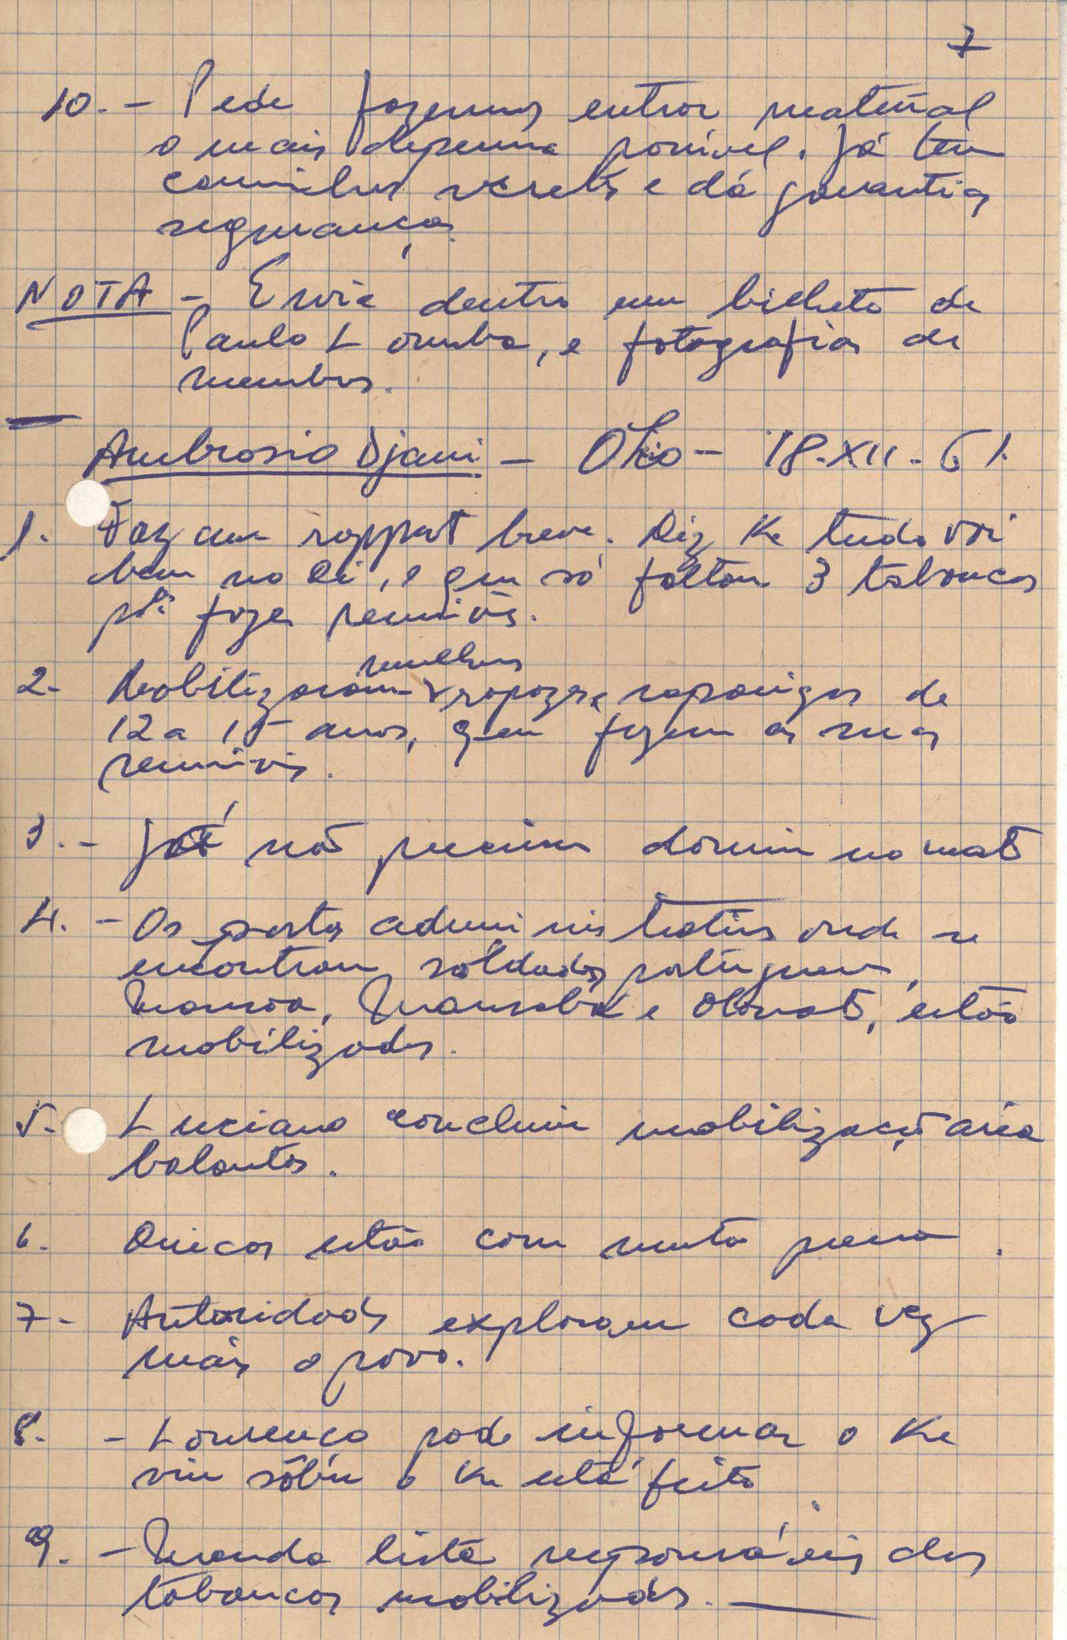 7
10. - Pede fazermos entrar material
o mais depressa possível. Já tem
caminhos secretos e dá garantias
segurança.
NOTA - Envia dentro um bilhete de
Paulo Lomba, e fotografias de
membros.
Ambrosio Djassi - Oio - 18.XII.61.
1. Faz um rapport breve. Diz ke tudo vai
bem no Oi, e que só faltam 3 tabancas
para fazer reuniões.
mulheres
2- Mobilizaram rapazes e raparigas de
12 a 15 anos, que fazem as suas
reuniões.
3. - Já não precisam dormir no mato
4. - Os postos administrativos onde se
encontram soldados portugueses,
Mansoa, Mansabá e Olossato, estão
mobilizados.
5. - Luciano concluiu mobilização área
balantas.
6. Oincas estão com muita pressa.
7- Autoridades exploram cada vez
mais o povo.
8. - Lourenço pode informar o ke
viu sôbre o ke está feito
9. - Manda lista responsáveis das
tabancas mobilizadas.